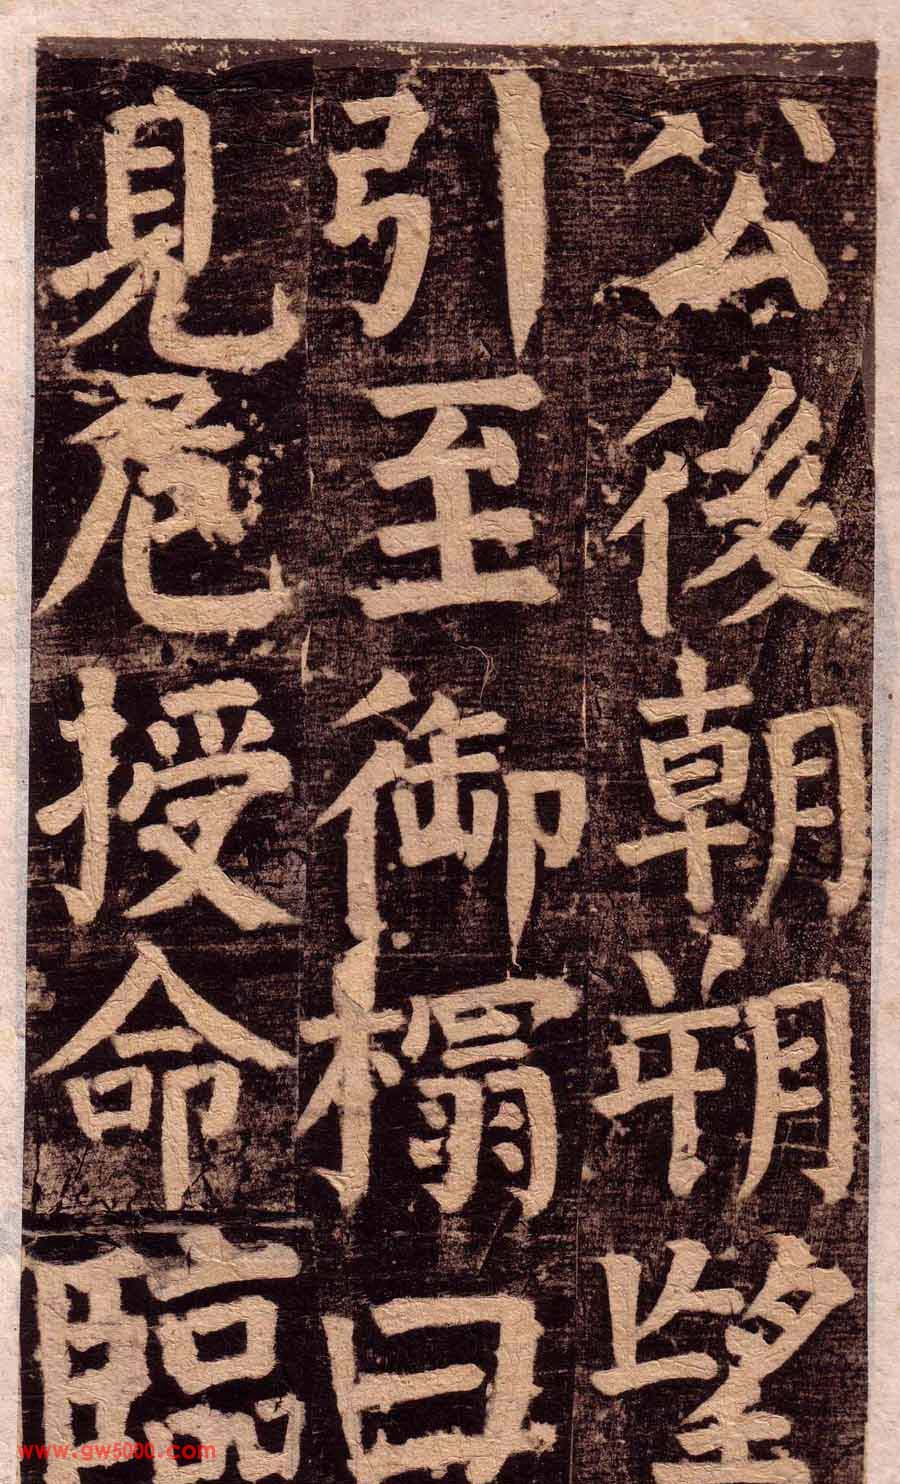 公後朝朔望
引至御榻曰
見危授命臨
www.gw5000.com